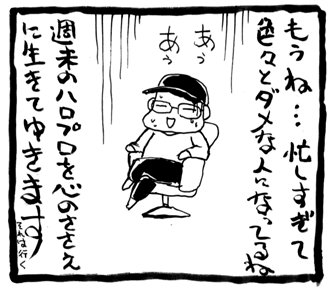 もうね…忙しすぎて
色々とダメな人になってるね
あぅ
あぅ
週末のハロプロを心のささえ
に生きてゆきます
それは行く